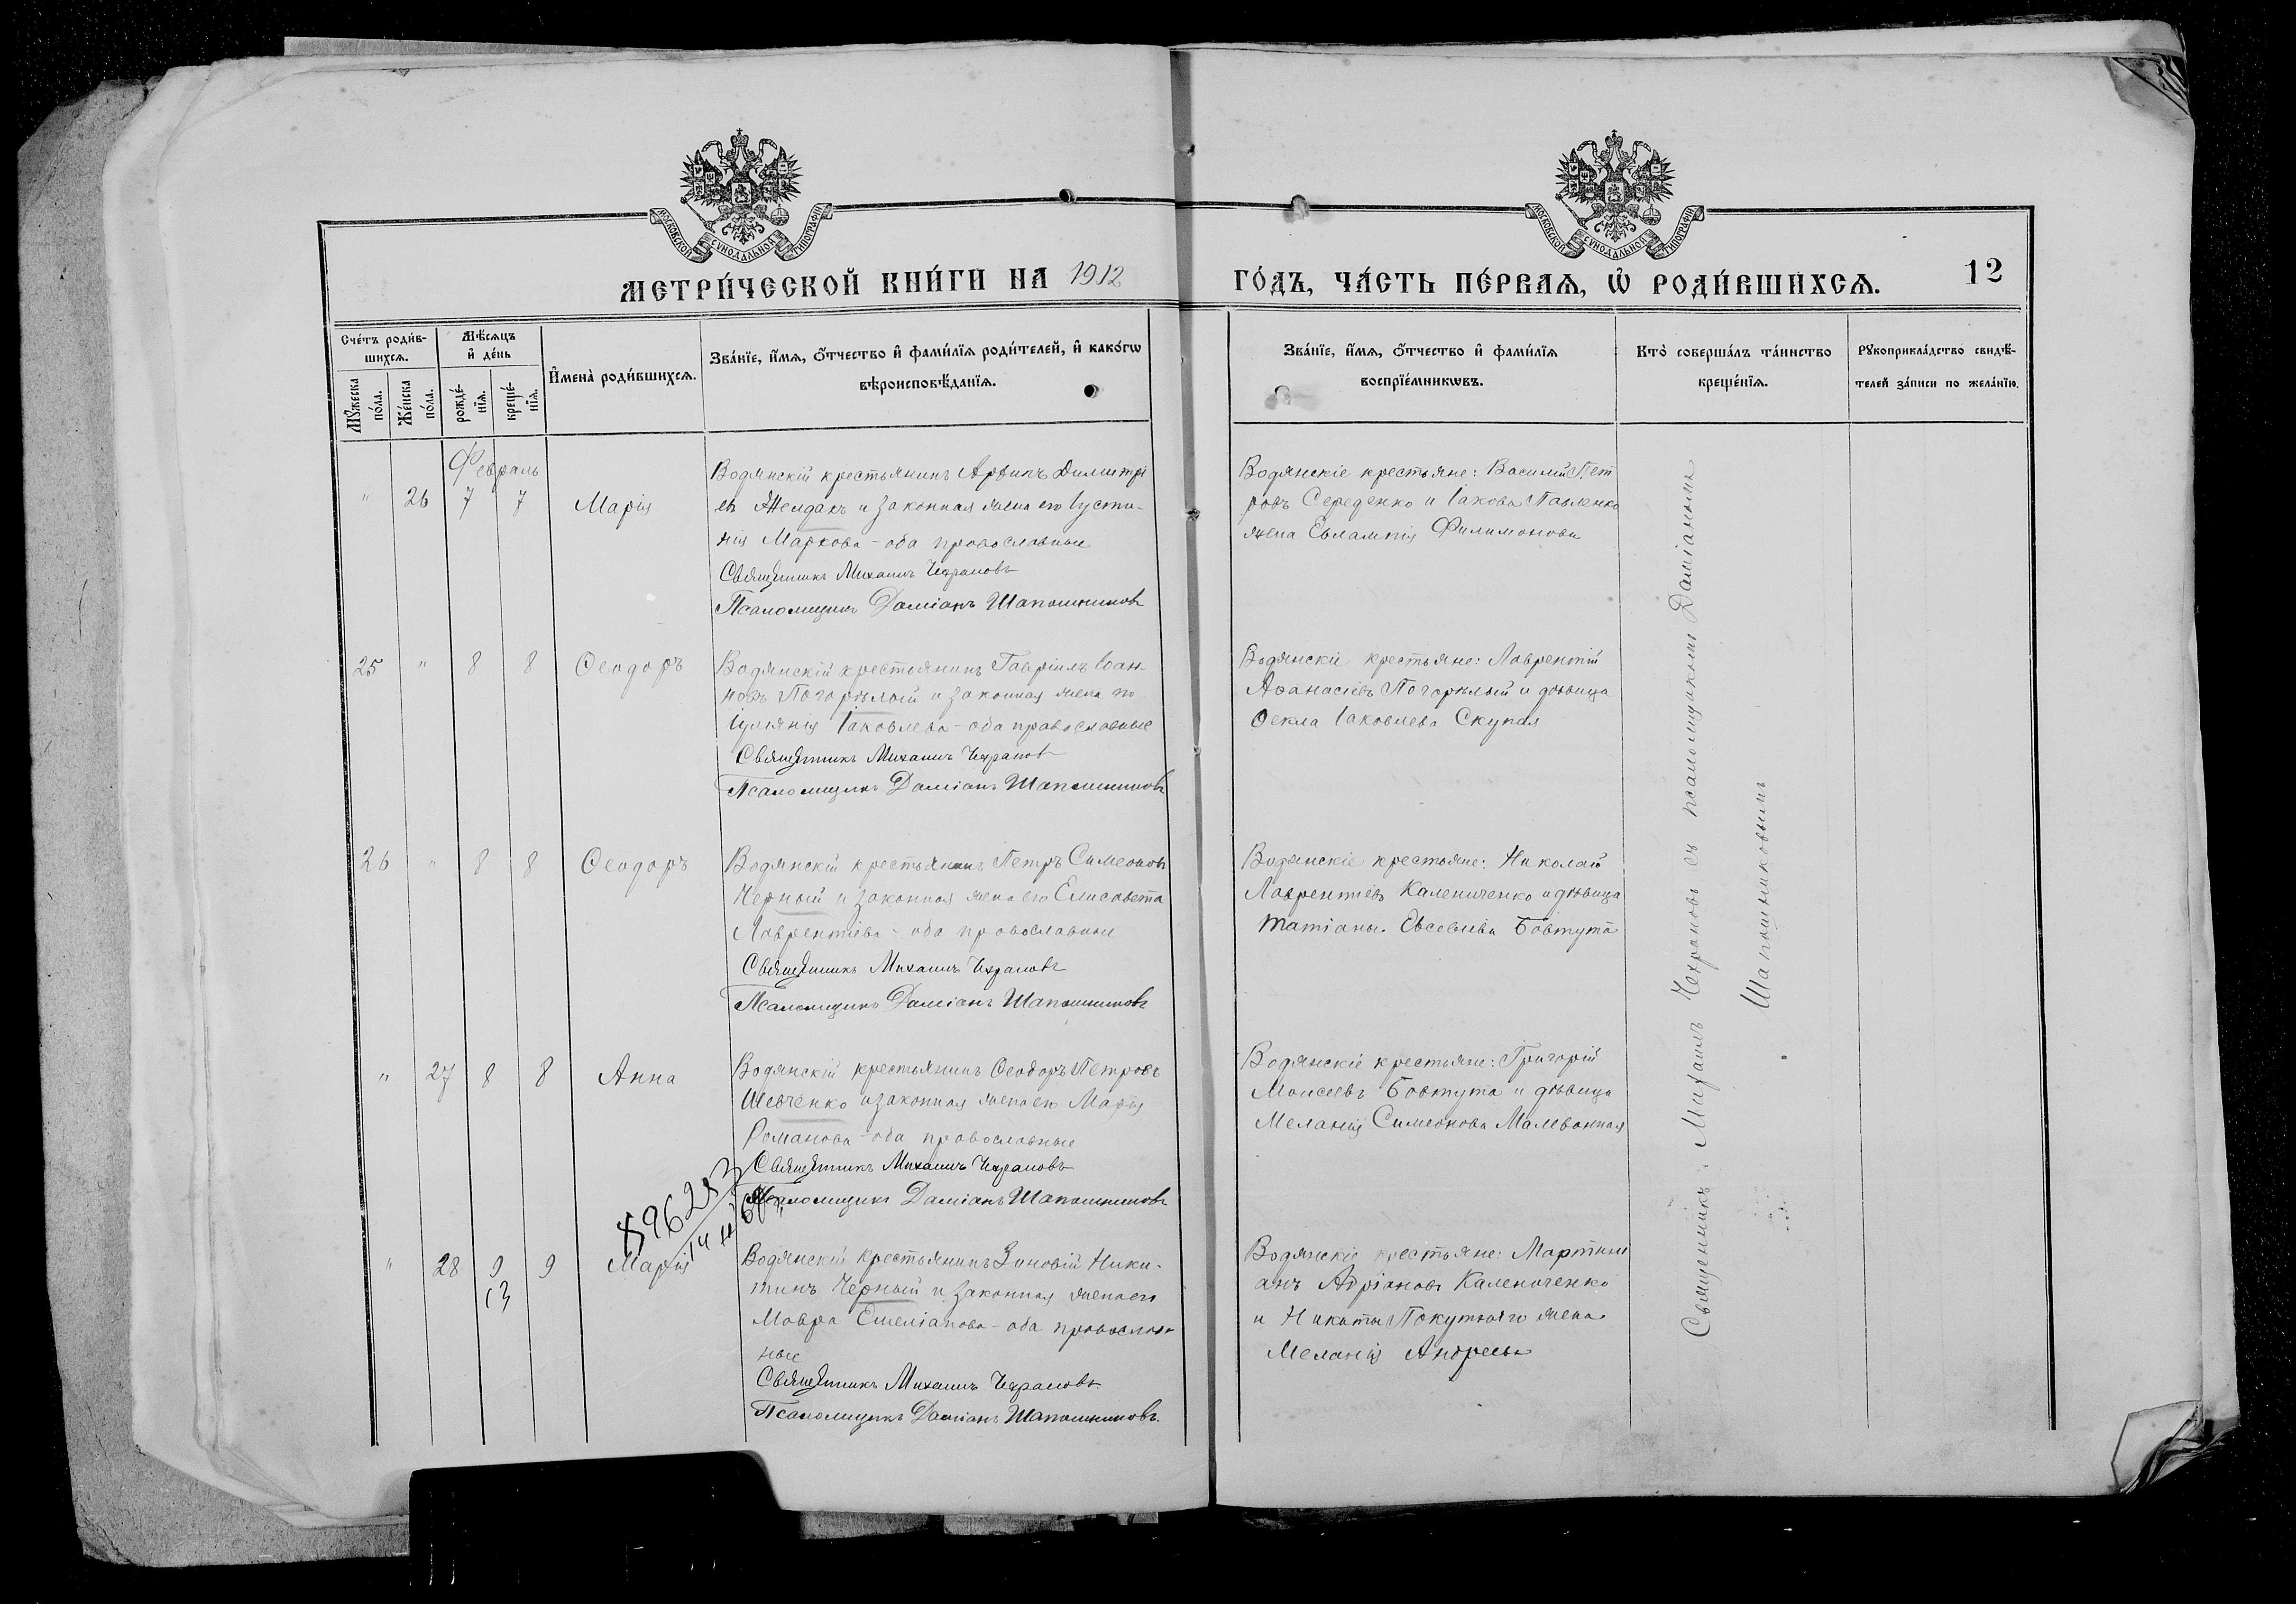 МОСКОВСКОЙ СѴНОДАЛЬНОЙ ТИПОГРАФІИ
МОСКОВСКОЙ СѴНОДАЛЬНОЙ ТИПОГРАФІИ
МЕТРИ́ЧЕСКОЙ КНИ́ГИ НА 1912
ГО́ДЪ, ЧА́СТЬ ПЕ́РВАѦ, Ѡ҆ РОДИ́ВШИХСѦ.
12
Сче́тъ роди́в-
шихсѧ.
Мѣ́сѧцъ
и҆ де́нь
Мꙋ́жеска
по́ла.
Же́нска
по́ла.
рожде́-
нїѧ.
креще́-
нїѧ.
И҆мена̀ роди́вшихсѧ.
Зва́нїе, и҆́мѧ, ѻ҆́тчество и҆ фами́лїѧ роди́телей, и҆ како́гѡ
вѣроисповѣ́данїѧ.
Зва́нїе, и҆́мѧ, ѻ҆́тчество и҆ фами́лїѧ
воспрїе́мникѡвъ.
Кто̀ соверша́лъ та́инство
креще́нїѧ.
Рꙋкоприкла́дство свидѣ́-
телей за́писи по жела́нїю.
Февраль
" 26 7 7 Марія
Водянскій крестьянинъ Димитрі
евъ Желдакъ и законная жена его Іусти-
нія Маркова - оба православные
Священникъ Михаилъ Чехрановъ
Псаломщикъ Даміанъ Шапошниковъ
Водянскіе крестьяне: Василій Пет
ровъ Середенко и Іакова Павленко
жена Евлампія Филимонова
25 " 8 8 Ѳеодоръ
Водянскій крестьянинъ Гавріилъ Іоан-
новъ Погорѣлый и законная жена его
Іуліанія Іаковлева - оба православные
Священникъ Михаилъ Чехрановъ
Псаломщикъ Даміанъ Шапошниковъ
Водянскіе крестьяне: Лаврентій
Аѳанасіевъ Погорѣлый и дѣвица
Ѳекла Іаковлева Скупая
26 " 8 8 Ѳеодоръ
Водянскій крестьянинъ Петръ Симеоновъ
Черный и законная жена его Елисавета
Лаврентіева - оба православные
Священникъ Михаилъ Чехрановъ
Псаломщикъ Даміанъ Шапошниковъ
Водянскіе крестьяне: Николай
Лаврентіевъ Калениченко и дѣвица
Татіана Евсевіева Бовтута
" 27 8 8 Анна
Водянскій крестьянинъ Ѳеодоръ Петровъ
Шевченко и законная жена его Марія
Романова - оба православные
Священникъ Михаилъ Чехрановъ
Псаломщикъ Даміанъ Шапошниковъ
Водянскіе крестьяне: Григорій
Моисеевъ Бовтута и дѣвица
Меланія Симеонова Малеванная
896283
" 28 9 9 Марія
13
Водянскій крестьянинъ Зиновій Ники-
тинъ Черный и законная жена его
Мавра Емеліанова - оба православ-
ные
Священникъ Михаилъ Чехрановъ
Псаломщикъ Даміанъ Шапошниковъ.
Водянскіе крестьяне: Мартини
анъ Адріановъ Калениченко
и Никиты Покутняго жена
Меланія Андреева
Священникъ Михаилъ Чехрановъ съ псаломщикомъ Даміаномъ
Шапошниковымъ